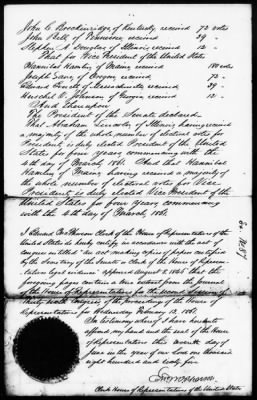 John C. Breckinridge of Kentucky received 72 votes
John Bell of Tennessee received 39 "
Stephen A. Douglas of Illinois received 12 "
That for Vice President of the United States
Hannibal Hamlin of Maine received 180 votes
Joseph Lane of Oregon received 72 "
Edward Everett of Massachusetts received 39 "
Herschel V. Johnson of Georgia received 12 "
And thereupon
The President of the Senate declared
That Abraham Lincoln of Illinois having received
a majority of the whole number of electoral votes for
President is duly elected President of the United
States for four years commencing with the
4th day of March, 1861. And that Hannibal
Hamlin of Maine having received a majority of
the whole number of electoral votes for Vice
President is duly elected Vice President of the
United States for four years commencing
with the 4th day of March, 1861.
I Edward McPherson Clerk of the House of Representatives of the
United States do hereby certify in accordance with the act of
Congress entitled "An act making copies of papers certified
by the Secretary of the Senate or Clerk of the House of Represen-
tatives legal evidence" approved August 8, 1846 that the
foregoing pages contain a true extract from the journal
of the House of Representatives for the second Session of
Thirty sixth Congress of the Proceedings of the House of
Representatives for Wednesday February 13, 1861.
In testimony whereof I have hereunto
affixed my hand and the seal of the House
of Representatives this day of
June in the year of our Lord one thousand
eight hundred and sixty four
Clerk House of Representatives of the United States